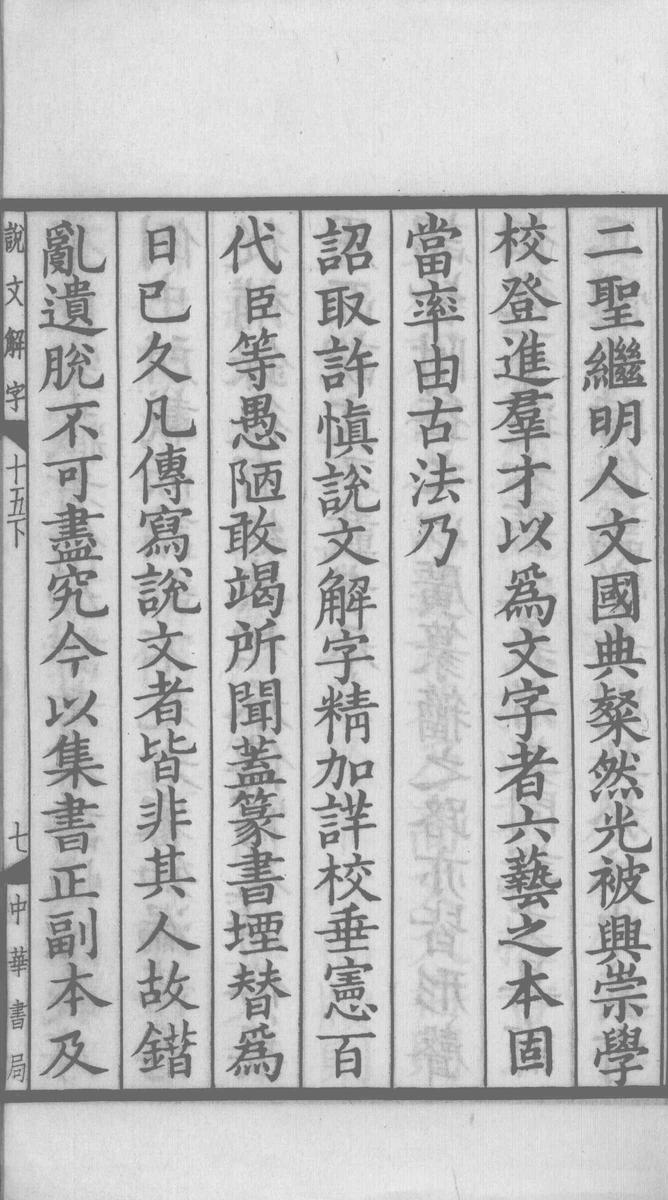 二聖繼明人文國典粲然光被興崇學
校登進羣才以爲文字者六藝之本固
當率由古法乃
詔取許愼說文解字精加詳校垂憲百
代臣等愚陋敢竭所聞蓋篆書堙替爲
日已久凡傳寫說文者皆非其人故錯
亂遺脫不可盡究今以集書正副本及
說文解字 十五下 七 中華書局